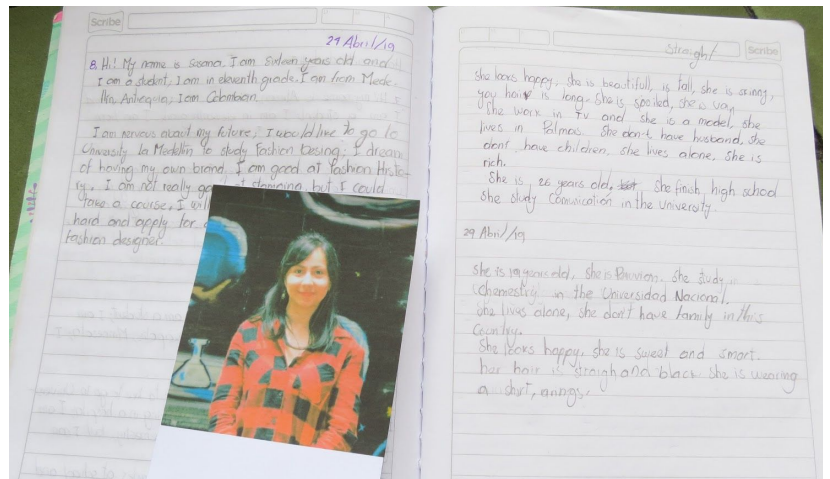 Scribe
29 Abril/19
8. Hi! My name is Susana. I am Sixteen years old and
I am a student, I am in eleventh grade. I am from Mede-
llin Antioquia, I am Colombian.
I am nervous about my future, I would like to go to
University la Medellin to study Fashion Desing; I dream
of having my own brand. I am good at Fashion Histo-
ry. I am not really but I could
take a course. I will
hard and apply for
Fashion designer.
Straight
Scribe
she looks happy, she is beautifull, is tall, she is skinny,
you hair is long. She is spoiled, she is
She work in TV and she is a model, she
lives in Palmas. She don't have husband, she
dont have children, she lives alone, she is
rich.
She is 26 years old, she finish high school
she study Comunication in the University.
29 Abril/19
she is 19 years old, she is Peruvion. she study
Chemestry in the Universidad Nacional.
She lives alone, she don't have family in this
Country.
She looks happy, she is sweet and smart.
her hair is straigh and black she is wearing
a shirt, arings.